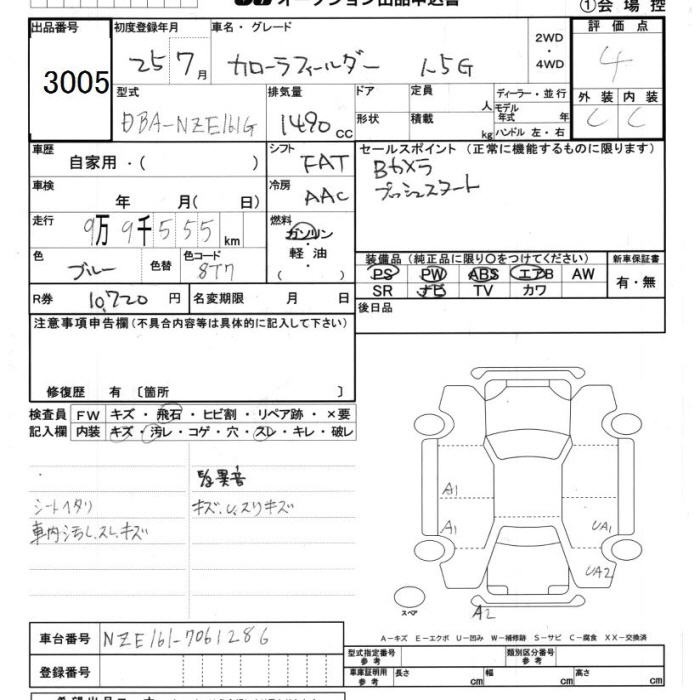 オークション出品申込書
①会場控
出品番号 初度登録年月 車名・グレード 評価点
3005 25 7月 カローラフィールダー 1.5G 2WD・4WD 4
型式 排気量 ドア 定員 人 ディーラー・並行 外装 内装
DBA-NZE161G 1490 CC 形状 積載 kg モデル年式 年 ハンドル 左・右 C C
車歴 自家用・( ) シフト FAT セールスポイント (正常に機能するものに限ります)
Bカメラ
プッシュスタート
車検 年 月( 日) 冷房 AAC
走行 9万9千555km 燃料 ガソリン・軽油・( )
色 ブルー 色替 色コード 8T7
装備品(純正品に限り○をつけてください) 新車保証書
PS PW ABS エアB AW 有・無
SR ナビ TV カワ
R券 10,720 円 名変期限 月 日
後日品
注意事項申告欄(不具合内容等は具体的に記入して下さい)
修復歴 有〔箇所 〕
検査員 FW キズ・飛石・ヒビ割・リペア跡・×要
記入欄 内装 キズ・汚レ・コゲ・穴・スレ・キレ・破レ
シートイタリ キズ.U.スリキズ
車内汚レ.スレ.キズ
A1
A1 UA1
UA2
スペア A2
A-キズ E-エクボ U-凹み W-補修跡 S-サビ C-腐食 XX-交換済
車台番号 NZE161-7061286
型式指定番号 参考 類別区分番号 参考
登録番号 車庫証明用 参考 長さ cm 幅 cm 高さ cm
希望出品コーナー